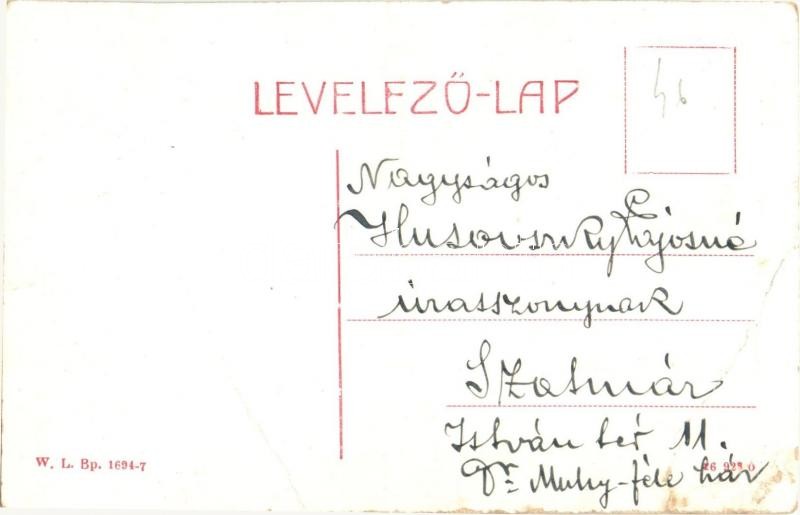 LEVELEZŐ-LAP
46
Nagyságos
Lajosné
úrasszonynak
Szatmár
István tér 11.
Dr. Muhy-féle ház
W. L. Bp. 1694-7